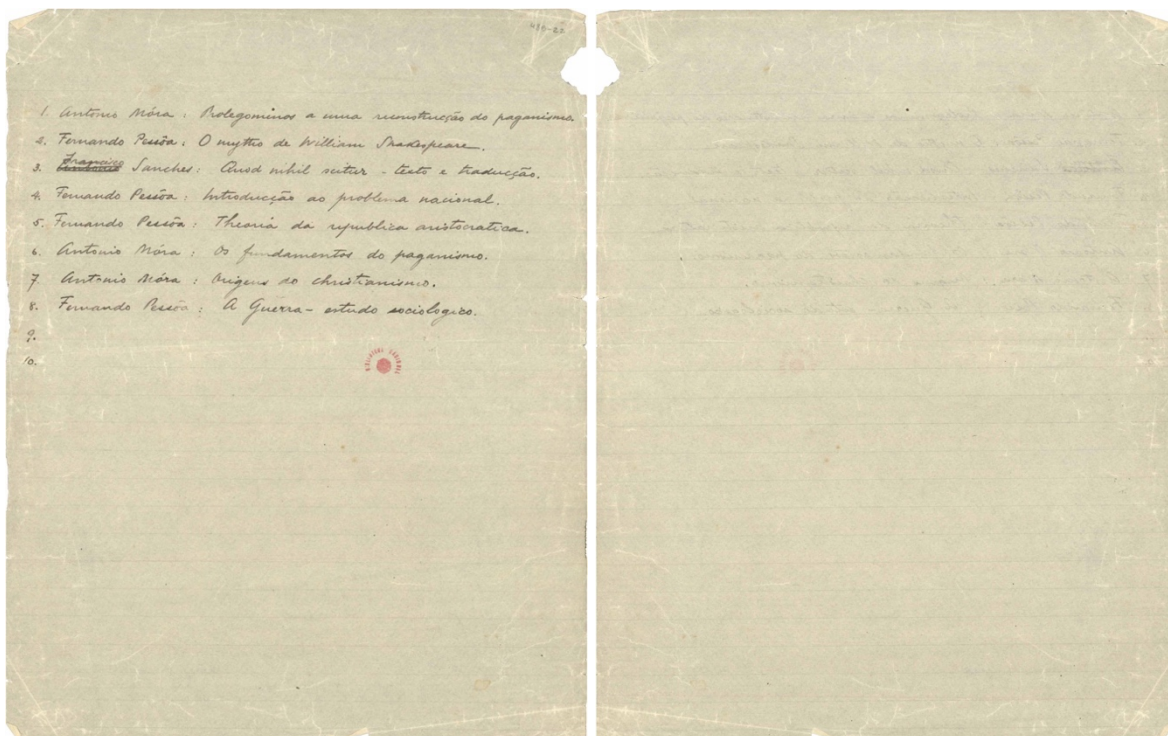 48D-22
1. Antonio Móra: Prolegominos a uma reconstrucção do paganismo
2. Fernando Pessôa: O mytho de William Shakespeare.
3. Francisco Sanches: Quod nihil scitur - texto e traducção.
4. Fernando Pessôa: Introducção ao problema nacional.
5. Fernando Pessôa: Theoria da republica aristocratica.
6. Antonio Móra: Os fundamentos do paganismo.
7. Antonio Móra: Origens do christianismo.
8. Fernando Pessôa: A Guerra - estudo sociologico.
9.
10.
BIBLIOTECA NACIONAL